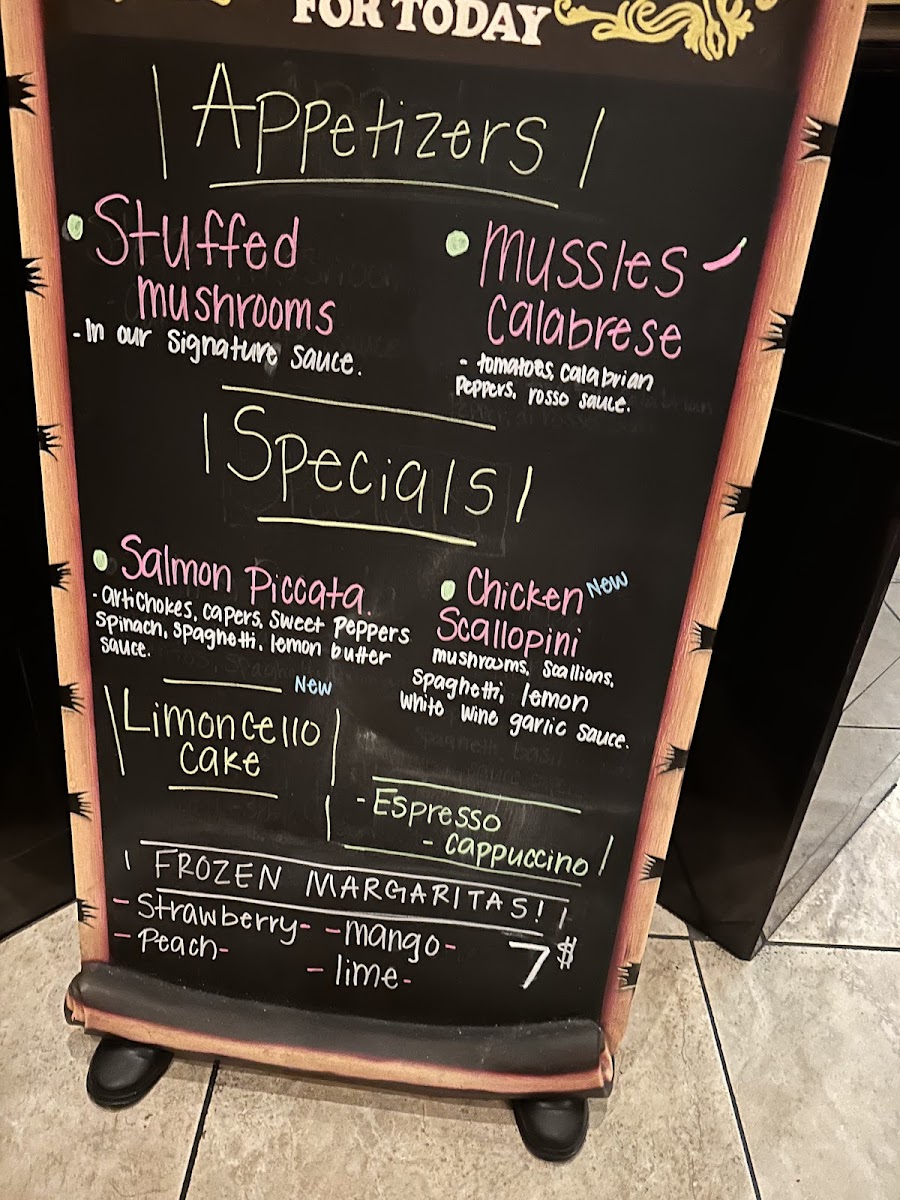 FOR TODAY
Appetizers
• Stuffed
mushrooms
- In our signature sauce.
• Mussles
Calabrese
- tomatoes, calabrian
peppers, rosso sauce.
Specials
• Salmon Piccata
- artichokes, capers, sweet peppers
spinach, spaghetti, lemon butter
sauce.
• Chicken New
Scallopini
mushrooms, scallions,
spaghetti, lemon
white wine garlic sauce.
New
Limoncello
cake
- Espresso
- cappuccino
FROZEN MARGARITAS!
- Strawberry - - mango -
- Peach - - lime -
7$